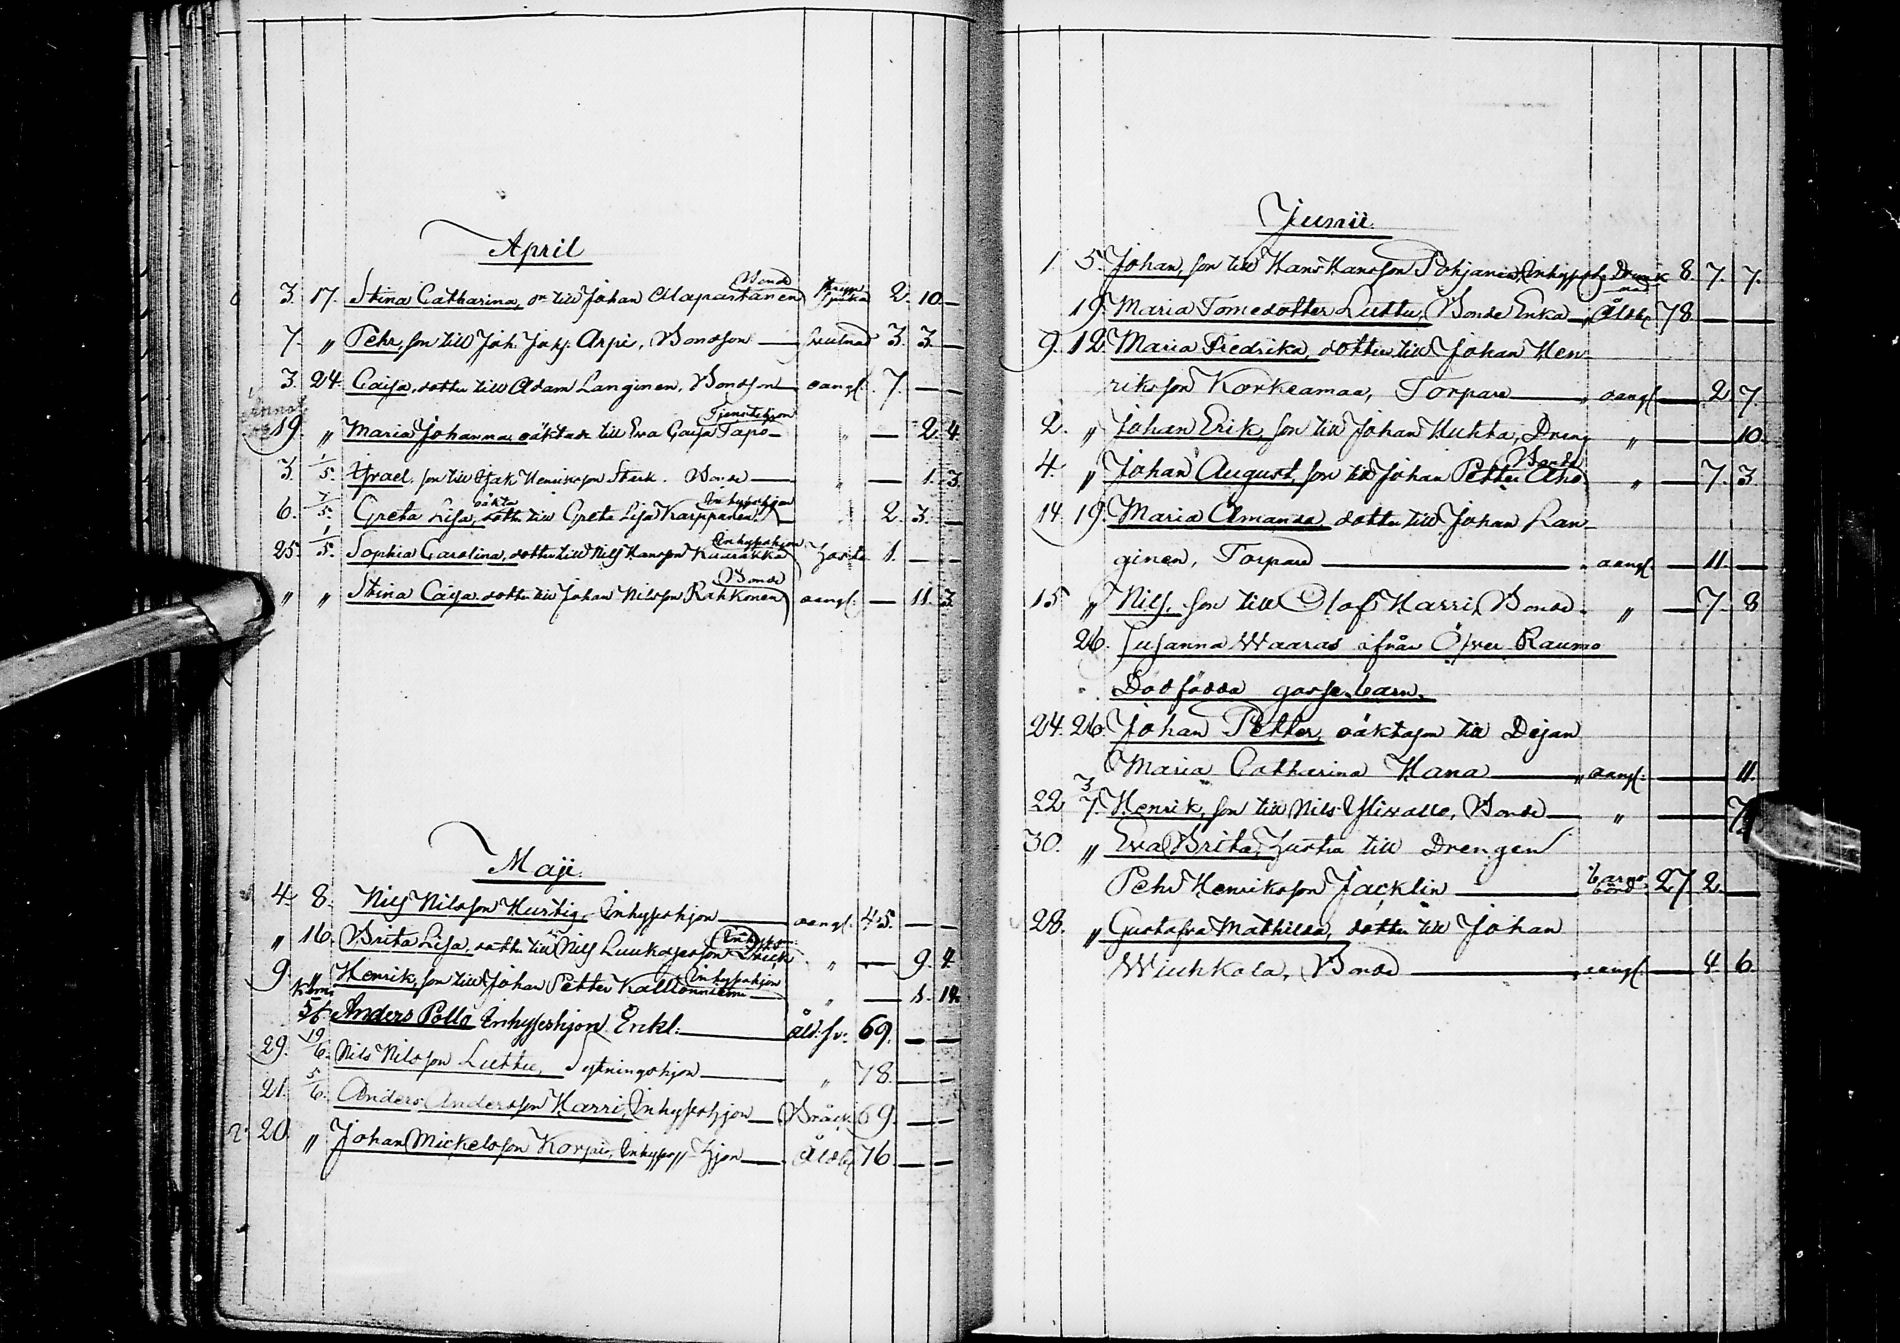 April
Bonde
3. 17. Stina Catharina, dr till Johan Maparstanen 2. 10. —
7. " Pehr, son till Joh: Jak: Arpi, Bondson — 3. 3 —
3. 24. Caisa, dotter till Adam Langinen, Bondson — oangf. 7. — —
Tjenstehjon
19. " Maria Johanna oäkta dr till Eva Caisa Tapo — " — 2. 4.
3. 1/5. Israel, son till Isak Henriksson Stark. Bonde — " — 1. 3
oäkta Inhyseshjon
6. 7/5. Greta Lisa, dotter till Greta Lisa Karppanen " 2. 3. —
Inhyseshjon
25. 1/5. Sophia Carolina, dotter till Nils Hansson Kuurakka 1. — —
Bonde
" " Stina Caisa dotter till Johan Nilsson Rahkonen oangf: — 11. 3
Maji
4. 8. Nils Nilsson Hurtig, Inhyseshjon — oangf. 45. — —
" 16. Brita Lisa, dotter till Nils Luukasson " — 9. 4
Inhyseshjon
9. " Henrik, son till Johan Petter " — 1. 14
5/6. Anders Pollo Inhyseshjon Enkl: — åld:sv: 69. — —
29. 19/6. Nils Nilsson Luttu, Sytningshjon — " 78. — —
21. 5/6. Anders Andersson Harri, Inhyseshjon — Bråck 69. — —
20 " Johan Mickelsson Korpi, Inhyses Hjon — Åldsv 76 — —
Junii.
1. 5. Johan, son till Hans Hansson Pohjanen, Inhysshj. Drunknad 8. 7. 7.
19. Maria Tomedotter Luttu, Bonde Enka — Åldsv 78 — —
9. 12. Maria Fredrika, dotter till Johan Hen-
riksson Korkeamaa, Torpare — " oangf. — 2. 7.
2. " Johan Erik, son till Johan Huhta, Dreng " — 10.
Bonde
4. " Johan August, son till Johan Petter Aho " — 7. 3
14. 19. Maria Amanda dotter till Johan Lan-
ginen, Torpare — " oangf. — 11. —
15. " Nils, son till Olof Harri, Bonde. " — 7. 8
26. Susanna Waaras ifrån Öfver Raumo
Dödfödda gosse barn.
24. 26. Johan Petter, oäkta son till Dejan
Maria Catharina Hana — " oangf: — — 11.
22 3/7. Henrik, son till Nils Yliwalle, Bonde — " — — 7
30. " Eva Brita, Hustru till Drengen
Pehr Henriksson Jacklin — barnsbörd 27. 2. —
28. " Gustafva Mathilda, dotter till Johan
Wiuhkola, Bonde — " oangf. — 4. 6.